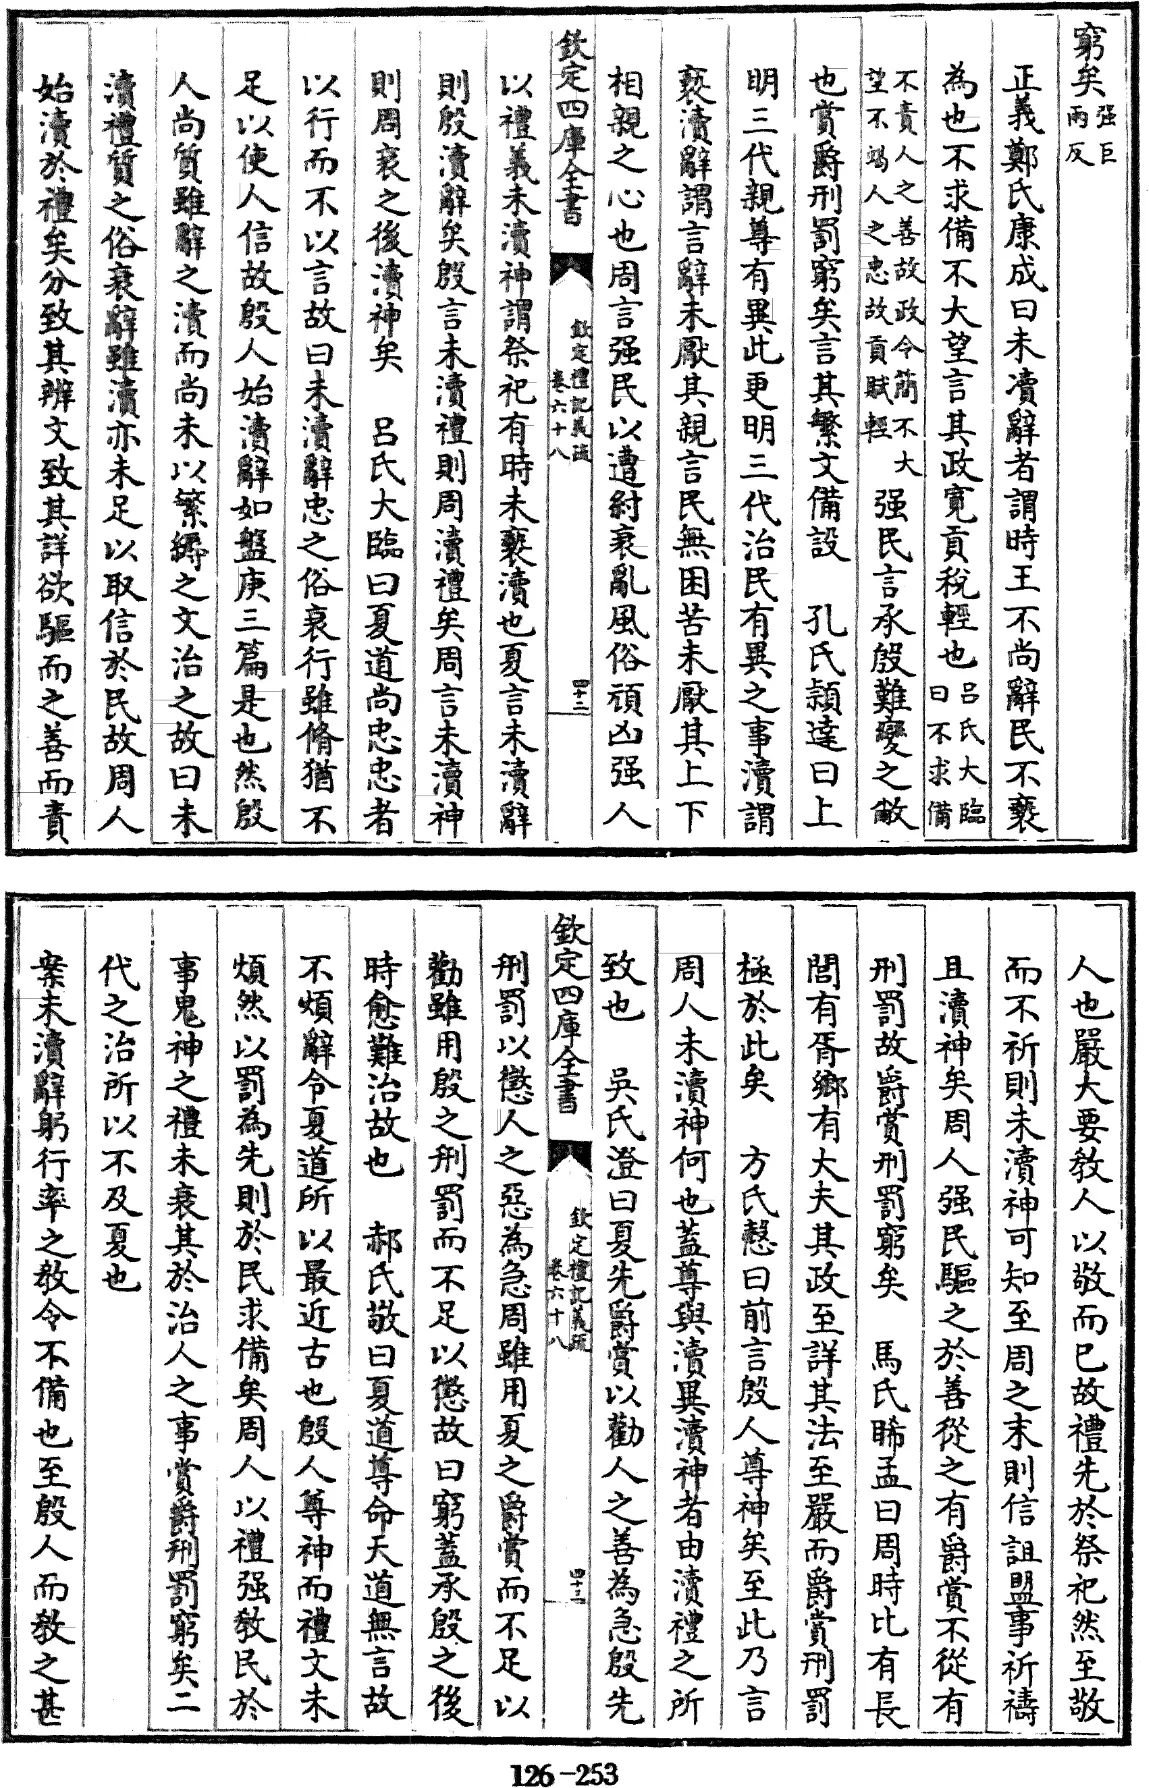 窮矣强巨兩反
正義鄭氏康成曰未凟辭者謂時王不尚辭民不褻
為也不求備不大望言其政寛貢稅輕也吕氏大臨曰不求備
不責人之善故政令簡不大望不竭人之忠故貢賦輕 强民言承殷難變之敝
也賞爵刑罰窮矣言其繁文備設 孔氏穎達曰上
明三代親尊有異此更明三代治民有異之事瀆謂
褻瀆辭謂言辭未厭其親言民無困苦未厭其上下
相親之心也周言强民以遭紂衰亂風俗頑凶强人
欽定四庫全書 欽定禮記義疏 卷六十八 四十二
以禮義未瀆神謂祭祀有時未褻瀆也夏言未瀆辭
則殷瀆辭矣殷言未瀆禮則周瀆禮矣周言未瀆神
則周衰之後瀆神矣 吕氏大臨曰夏道尚忠忠者
以行而不以言故曰未瀆辭忠之俗衰行雖脩猶不
足以使人信故殷人始瀆辭如盤庚三篇是也然殷
人尚質雖辭之瀆而尚未以繁縟之文治之故曰未
瀆禮質之俗衰辭雖瀆亦未足以取信於民故周人
始瀆於禮矣分致其辨文致其詳欲驅而之善而責
人也嚴大要教人以敬而已故禮先於祭祀然至敬
而不祈則未瀆神可知至周之末則信詛盟事祈禱
且瀆神矣周人强民驅之於善從之有爵賞不從有
刑罰故爵賞刑罰窮矣 馬氏晞孟曰周時比有長
閭有胥鄉有大夫其政至詳其法至嚴而爵賞刑罰
極於此矣 方氏慤曰前言殷人尊神矣至此乃言
周人未瀆神何也蓋尊與瀆異瀆神者由瀆禮之所
致也 吳氏澄曰夏先爵賞以勸人之善為急殷先
欽定四庫全書 欽定禮記義疏 卷六十八 四十三
刑罰以懲人之惡為急周雖用夏之爵賞而不足以
勸雖用殷之刑罰而不足以懲故曰窮蓋承殷之後
時愈難治故也 郝氏敬曰夏道尊命天道無言故
不煩辭令夏道所以最近古也殷人尊神而禮文未
煩然以罰為先則於民求備矣周人以禮强教民於
事鬼神之禮未衰其於治人之事賞爵刑罰窮矣二
代之治所以不及夏也
案未瀆辭躬行率之教令不備也至殷人而教之甚
126-253